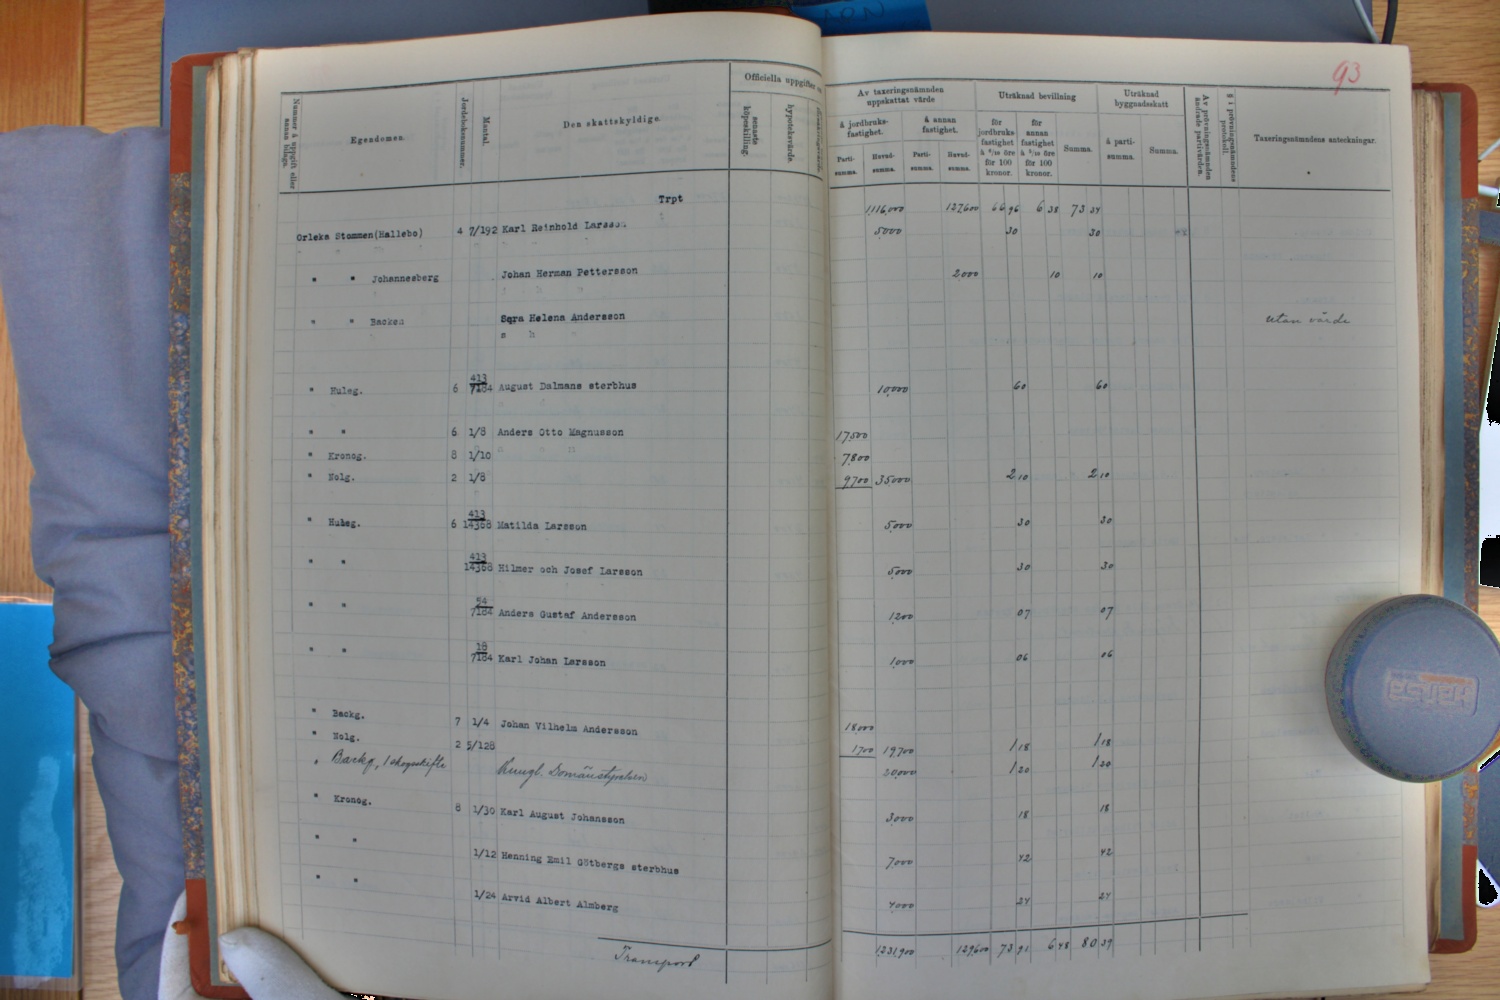 93
Nummer å uppgift eller annan bilaga.
Egendomen.
Jordeboksnummer.
Mantal.
Den skattskyldige.
Officiella uppgifter
senaste köpeskilling.
hypoteksvärde.
Av taxeringsnämnden uppskattat värde
å jordbruksfastighet.
å annan fastighet.
Parti-summa.
Huvud-summa.
Parti-summa.
Huvud-summa.
Uträknad bevillning
för jordbruksfastighet à 6/10 öre för 100 kronor.
för annan fastighet à 5/10 öre för 100 kronor.
Summa.
Uträknad byggnadsskatt
å parti-summa.
Summa.
Av prövningsnämnden ändrade partivärden.
§ i prövningsnämndens protokoll.
Taxeringsnämndens anteckningar.
Trpt 1,116,000 127,600 66 96 6 38 73 34
Orleka Stommen(Hallebo) 4 7/192 Karl Reinhold Larsson 5000 30 30
" " Johannesberg Johan Herman Pettersson 2000 10 10
" " Backen Sara Helena Andersson utan värde
" Huleg. 6 413/7184 August Dalmans sterbhus 10,000 60 60
" " 6 1/8 Anders Otto Magnusson 17,500
" Kronog. 8 1/10 7,800
" Nolg. 2 1/8 9700 35000 2 10 2 10
" Huleg. 6 413/14368 Matilda Larsson 5,000 30 30
" " 413/14368 Hilmer och Josef Larsson 5,000 30 30
" " 54/7184 Anders Gustaf Andersson 1,200 07 07
" " 18/7184 Karl Johan Larsson 1,000 06 06
" Backg. 7 1/4 Johan Vilhelm Andersson 18,000
" Nolg. 2 5/128 1,700 19,700 1 18 1 18
" Backg, 1 skogsskifte Kungl. Domänstyrelsen 20,000 1 20 1 20
" Kronog. 8 1/30 Karl August Johansson 3,000 18 18
" " 1/12 Henning Emil Götbergs sterbhus 7,000 42 42
" " 1/24 Arvid Albert Almberg 4,000 24 24
Transport 1,231,900 129,600 73 91 6 48 80 39